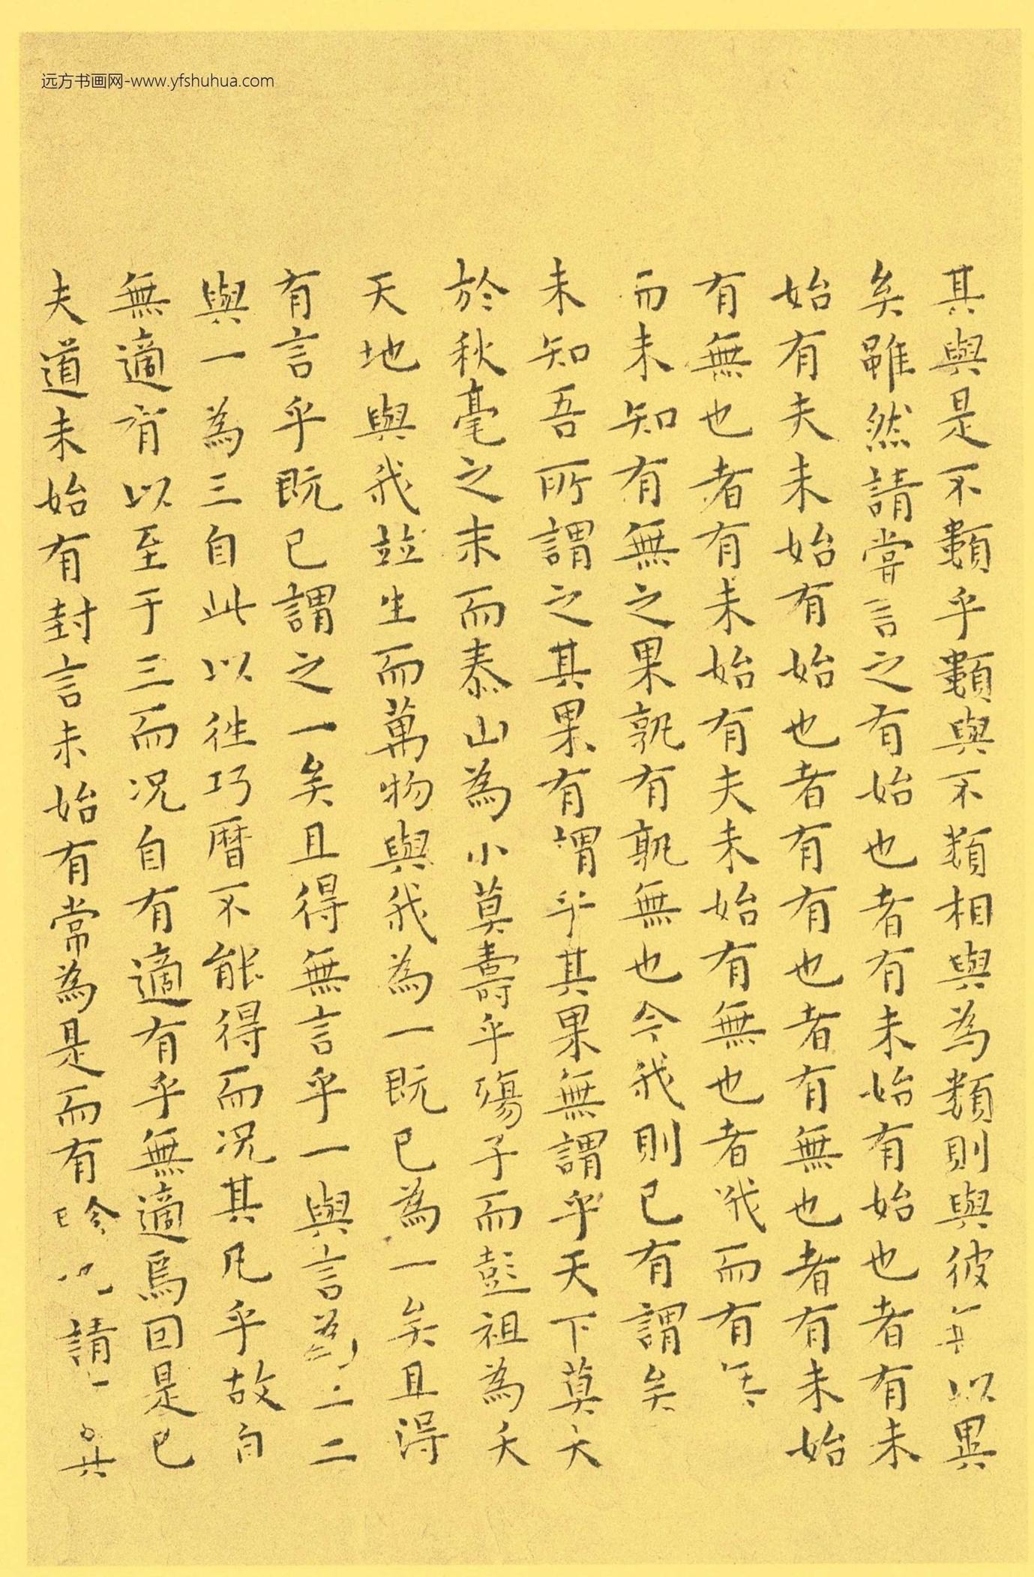 远方书画网-www.yfshuhua.com
其與是不類乎類與不類相與為類則與彼以異
矣雖然請嘗言之有始也者有未始有始也者有未
始有夫未始有始也者有有也者有無也者有未始
有無也者有未始有夫未始有無也者俄而有
而未知有無之果孰有孰無也今我則已有謂矣
未知吾所謂之其果有謂乎其果無謂乎天下莫大
於秋毫之末而泰山為小莫壽乎殤子而彭祖為夭
天地與我竝生而萬物與我為一既已為一矣且得
有言乎既已謂之一矣且得無言乎一與言為二二
與一為三自此以往巧曆不能得而况其凡乎故自
無適有以至于三而况自有適有乎無適焉因是已
夫道未始有封言未始有常為是而有請